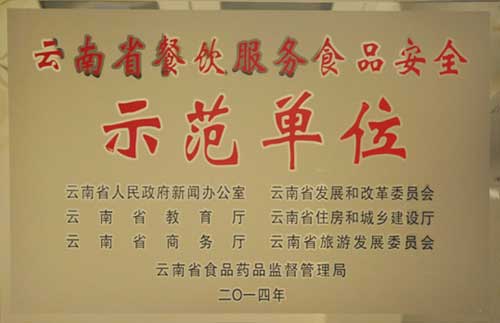 云南省餐饮服务食品安全
示范单位
云南省人民政府新闻办公室 云南省发展和改革委员会
云南省教育厅 云南省住房和城乡建设厅
云南省商务厅 云南省旅游发展委员会
云南省食品药品监督管理局
二〇一四年